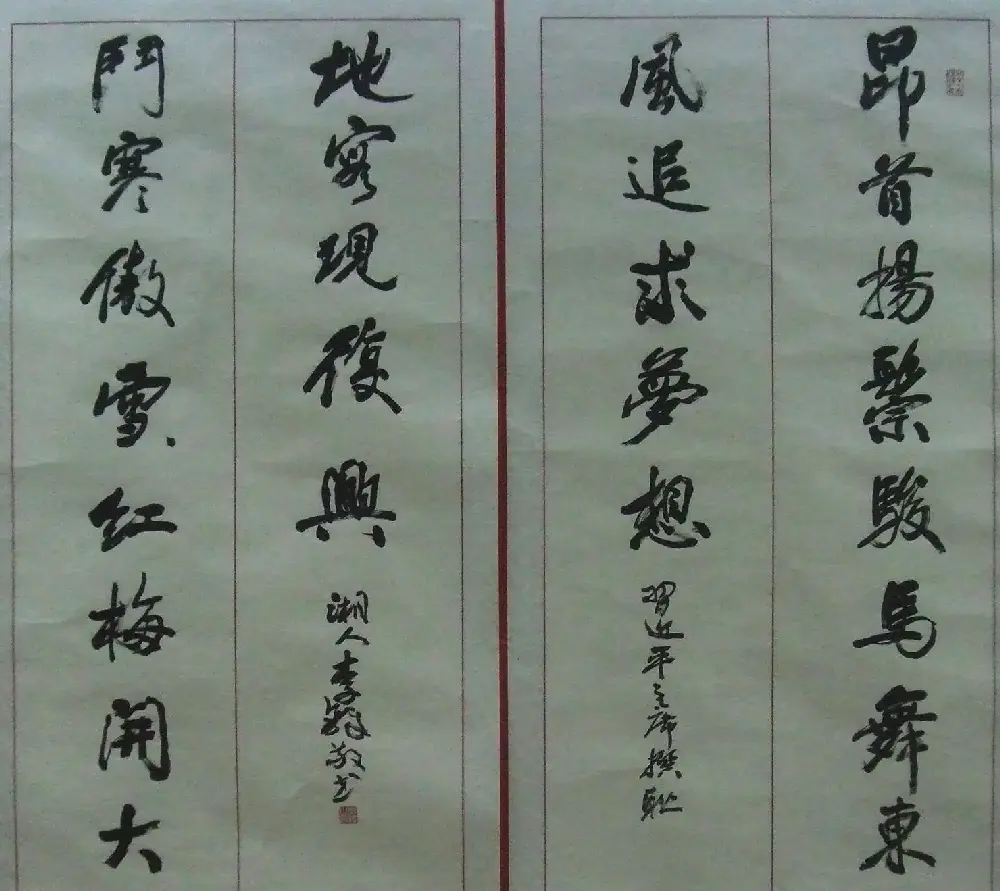 昂首揚鬃駿馬舞東
風追求夢想
習近平主席撰聯
鬥寒傲雪红梅開大
地實現復興
湘人李敬书